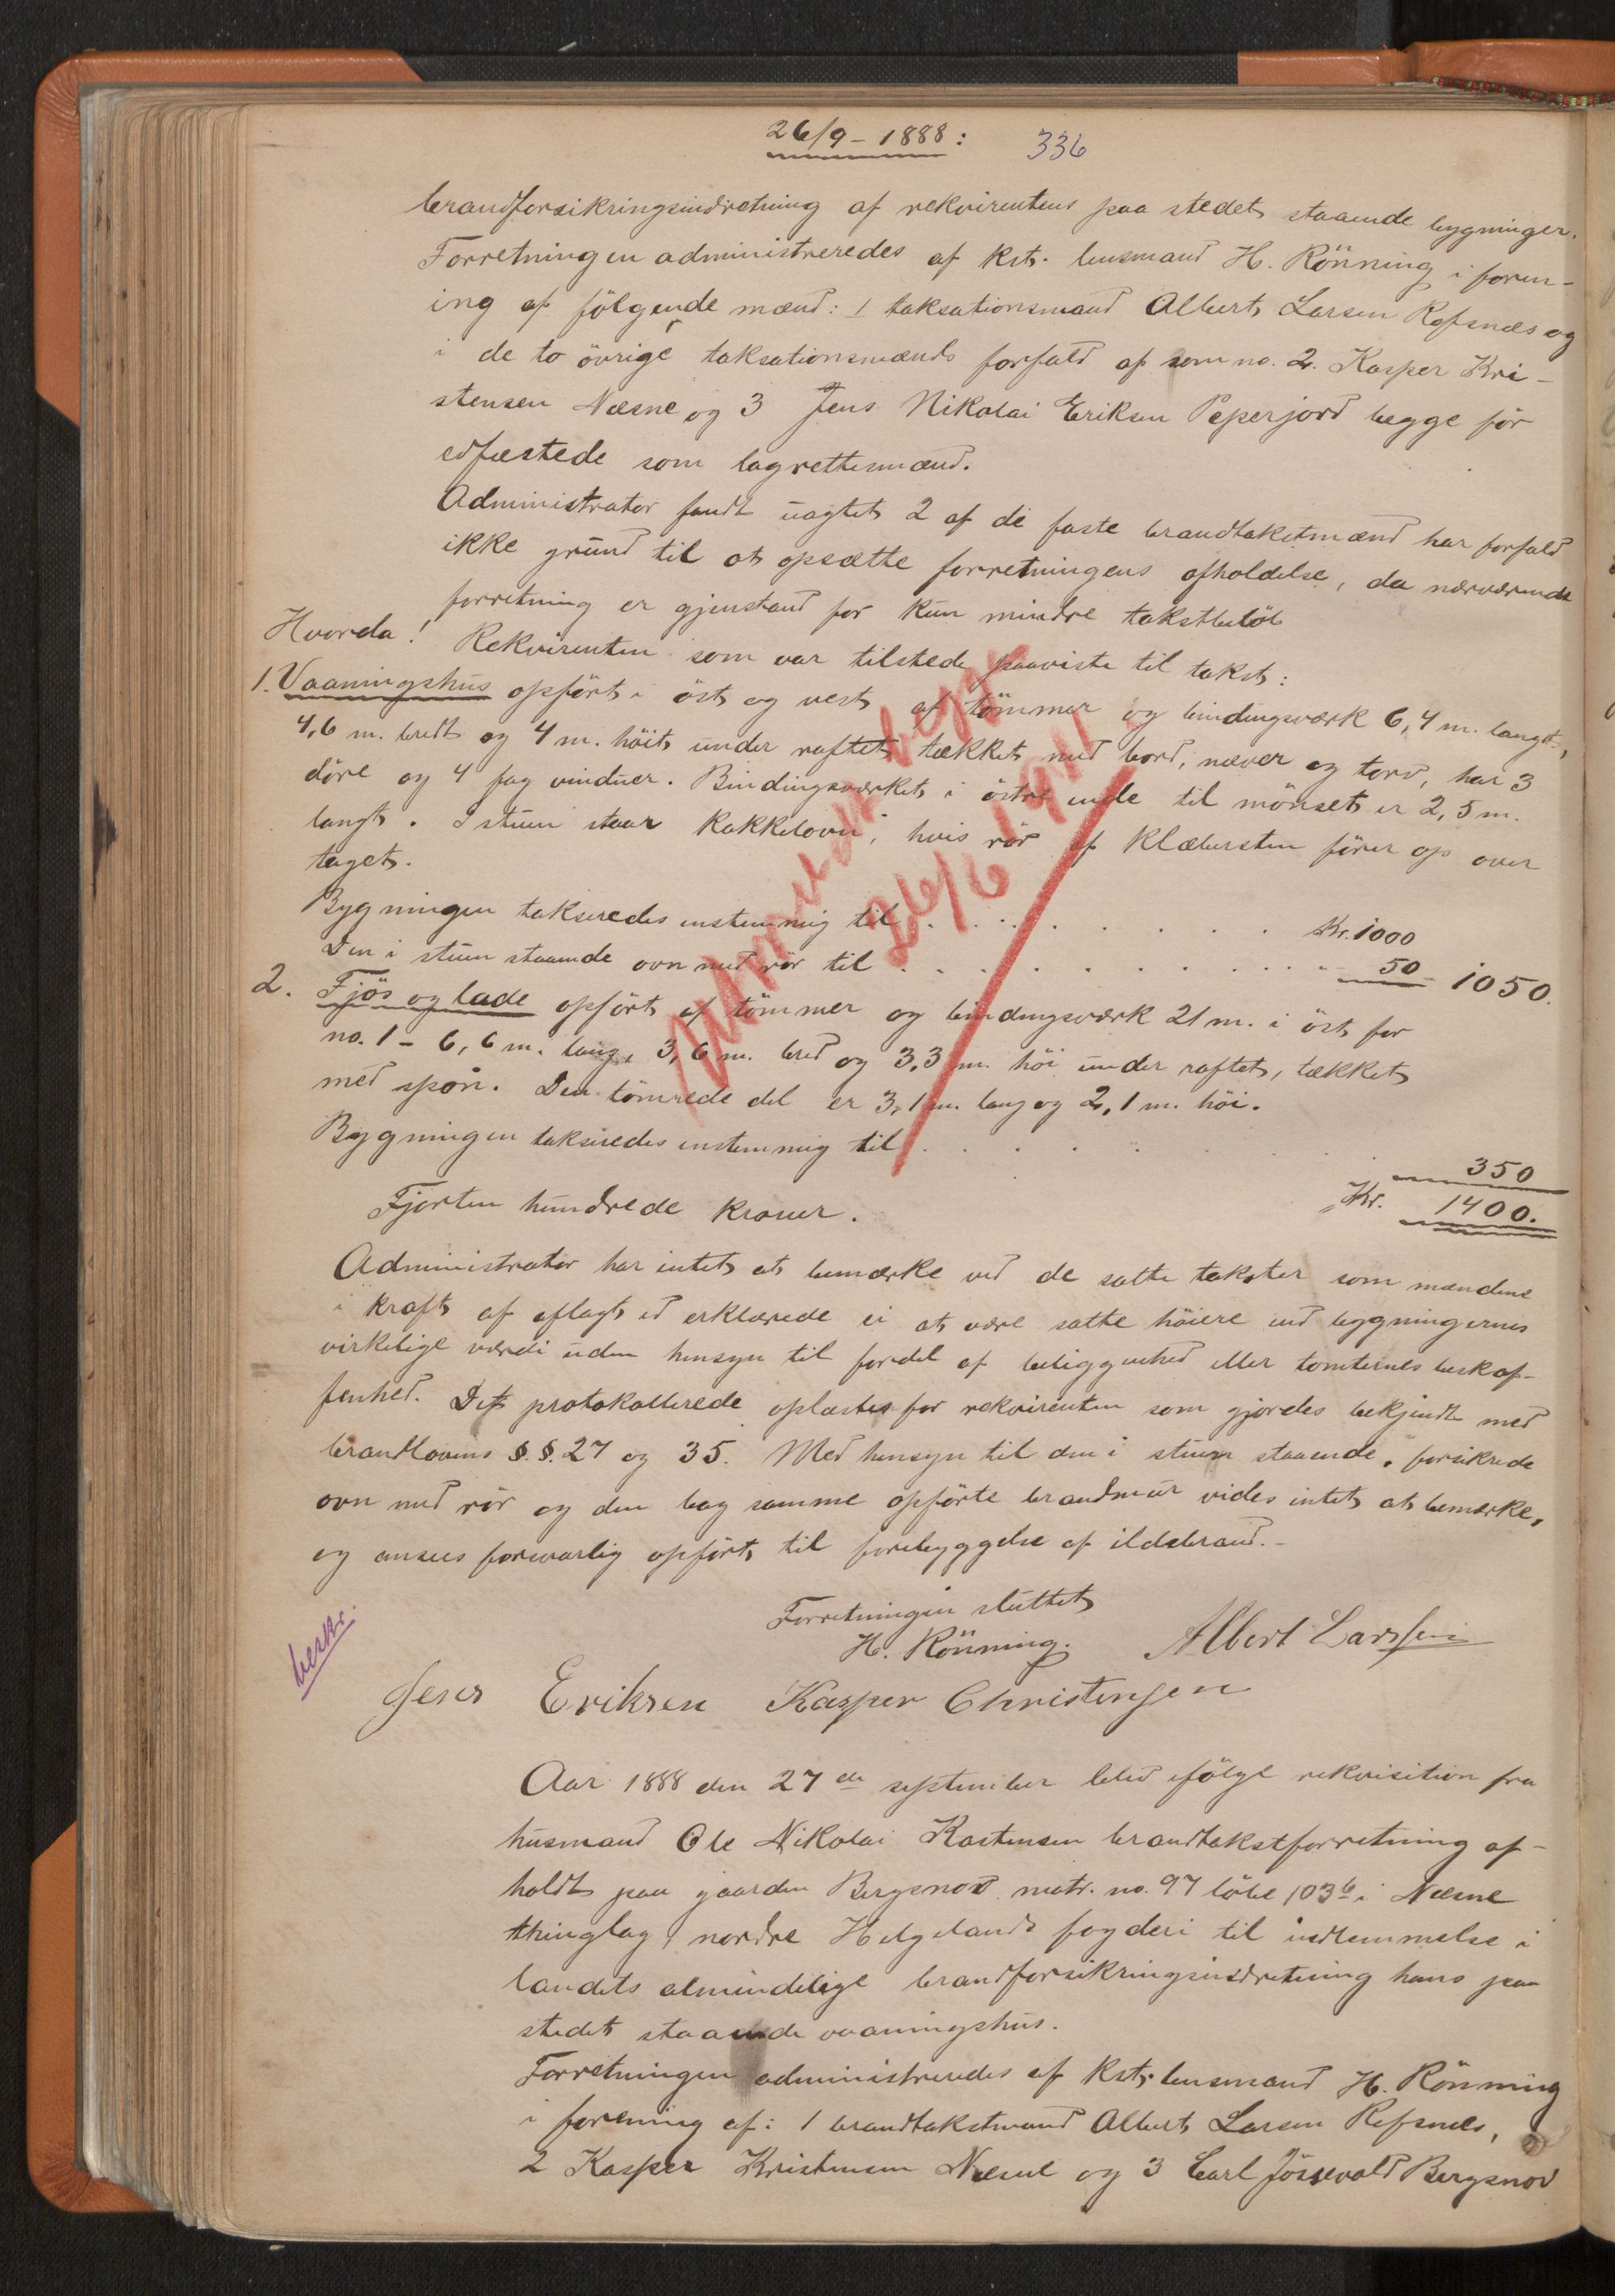 26/9 - 1888: 336
brandforsikringsindretning af rekvirentens paa stedet staaende bygninger.
Forretningen administreredes af kst. lensmand H. Rönning i foren-
ing af fölgende mænd: 1 taksationsmand Albert Larsen Refsnæs og
i de to övrige taksationsmænds forfald af som no. 2. Kasper Kri-
stensen Næsne og 3 Jens Nikolai Eriksen Peperjord begge för
edfæstede som lagrettesmænd.
Administrator fandt uagtet 2 af de faste brandtakstmænd har forfald
ikke grund til at opsætte forretningens afholdelse, da nærværende
forretning er gjenstand for kun mindre takstbelöb
Hvorda! Rekvirenten som var tilstede paaviste til takst:
1. Vaaningshus opfört i öst og vest af tömmer og bindingsværk 6,4 m. langt,
4,6 m. bredt og 4 m. höit under raftet, tækket med bord, næver og torv, har 3
döre og 4 fag vinduer. Bindingsværket i östre ende til mönset er 2,5 m.
langt. I stuen staar kakkelovn, hvis rör af Klæbersten förer op over
taget.
Bygningen takseredes enstemmig til . . . . . . . . . Kr. 1000
Den i stuen staaende ovn med rör til . . . . . . . . . 50 1050.
2. Fjös og lade opfört af tömmer og bindingsværk 21 m. i öst for
no. 1 - 6,6 m. lang, 3,6 m. bred og 3,3 m. höi under raftet, tækket
med spon. Den tömrede del er 3,1 m. lang og 2,1 m. höi.
Bygningen takseredes enstemmig til . . . . . . 350
Fjorten hundrede kroner. Kr. 1400.
26/6 1911
Administrator har intet at bemærke ved de satte takster som mændene
i kraft af aflagt ed erklærede ei at være satte höiere end bygningernes
virkelige værdi uden hensyn til fordel af beliggenhed eller tomternes beskaf-
fenhed. Det protokollerede oplæstes for rekvirenten som gjordes bekjendt med
brandlovens §.§. 27 og 35. Med hensyn til den i stuen staaende, forsikrede
ovn med rör og den bag samme opförte brandmur vides intet at bemærke,
og ansees forsvarlig opfört til forebyggelse af ildebrand.-
Forretningen sluttet
H. Rönning. Albert Larssen
beskr.
Jens Eriksen Kasper Christensen
Aar 1888 den 27de september blev ifölge rekvisition fra
husmand Ole Nikolai Kastensen brandtakstforretning af-
holdt paa gaarden Bergsnov matr. no. 97 löbe 103b i Næsne
thinglag, nordre Helgelands fogderi til indlemmelse i
landets almindelige brandforsikringsindretning hans paa
stedet staaende vaaningshus.
Forretningen administreredes af kst. lensmand H. Rönning
i forening af: 1 brandtakstmand Albert Larsen Refsnæs,
2 Kasper Kristensen Næsne og 3 Carl Bergsnov